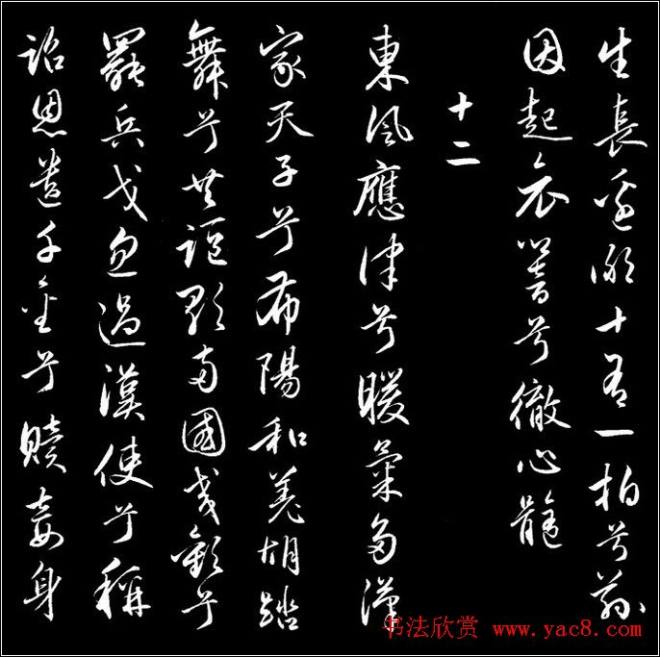 生長邊鄙十有一拍兮
因起哀響兮徹心髓
十二
東風應律兮暖氣多漢
家天子兮布陽和羌胡踏
舞兮共謳歌兩國交歡兮
罷兵戈忽遇漢使兮稱
詔恩遣千金兮贖妾身
书法欣赏 www.yac8.com